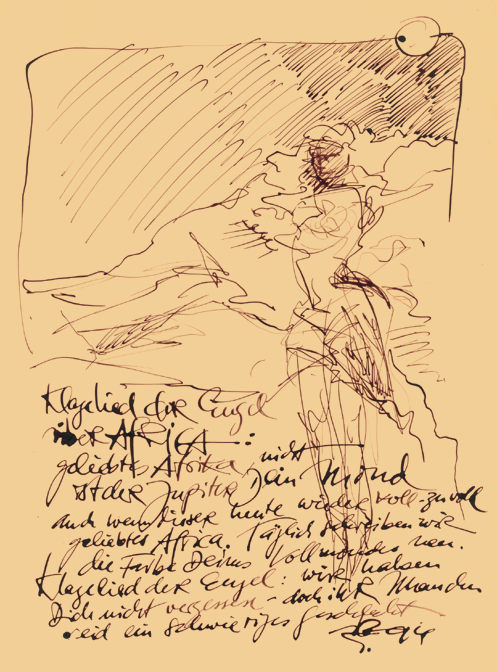 Klagelied der Engel
über AFRICA:
geliebtes Afrika, nicht
ist der Jupiter Dein Mond
auch wenn dieser heute wieder voll - zu voll
geliebtes Afrika. Täglich schreiben wir
die Farbe Deines Vollmondes neu.
Klagelied der Engel: wir haben
Dich nicht vergessen - doch ihr Menschen
seid ein schwieriges Geschlecht